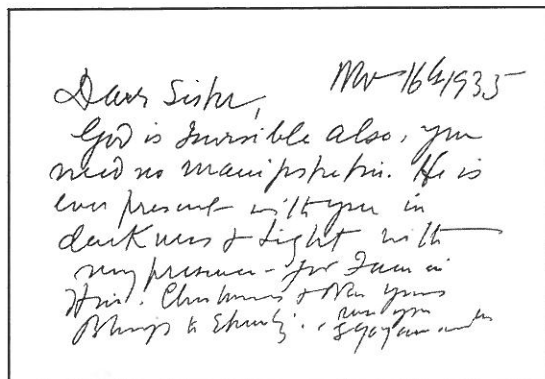 Nov 16th 1935
Dear Sister,
God is Invisible also, you
need no manifestation. He is
ever present with you in
darkness & light with
my presence - for I am in
Him. Christmas & New Years
Blessings to Eternity.